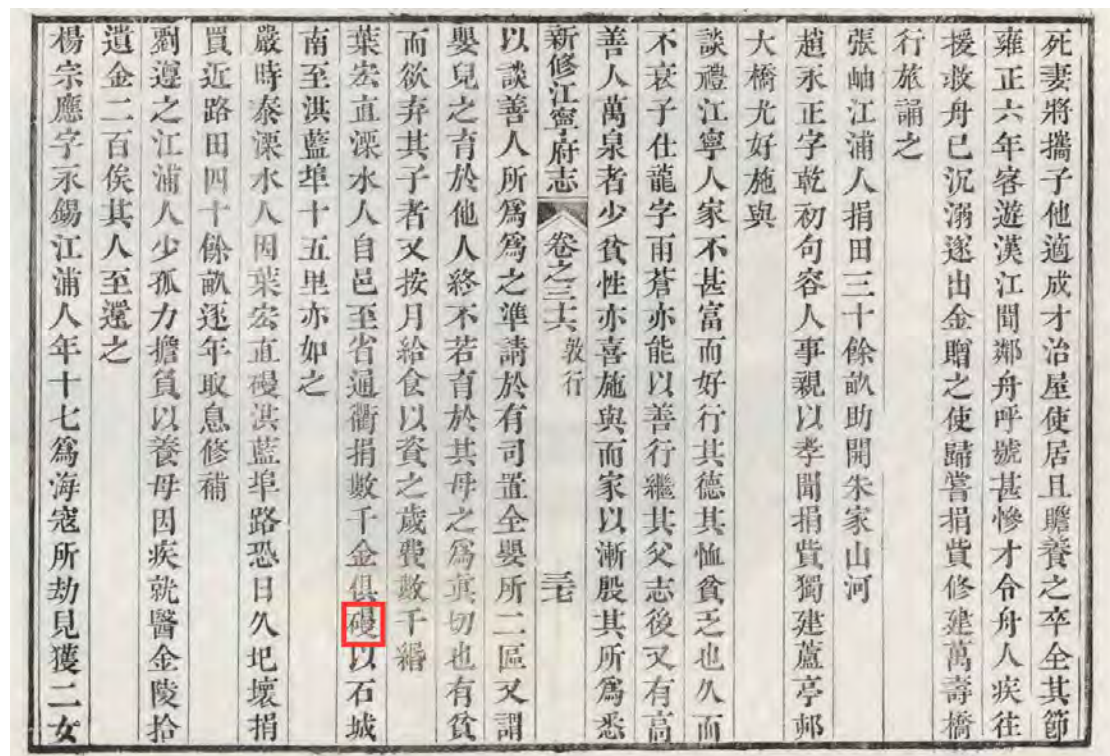 死妻將攜子他適成才治屋使居且贍養之卒全其節
雍正六年客遊漢江聞鄰舟呼號甚慘才令舟人疾往
援救舟已沉溺遂出金贈之使歸嘗捐貲修建萬壽橋
行旅誦之
張岫江浦人捐田三十餘畝助開朱家山河
趙永正字乾初句容人事親以孝聞捐貲獨建蘆亭邨
大橋尤好施與
談禮江寧人家不甚富而好行其德其恤貧乏也久而
不衰子仕龍字雨蒼亦能以善行繼其父志後又有高
善人萬泉者少貧性亦喜施與而家以漸殷其所爲悉
新修江寧府志 卷之三十六 敦行 三七
以談善人所爲爲之準請於有司置全嬰所二區又謂
嬰兒之育於他人終不若育於其母之爲真切也有貧
而欲弃其子者又按月給食以資之歲費數千緡
葉宏直溧水人自邑至省通衢捐數千金俱磘以石城
南至洪藍埠十五里亦如之
嚴時泰溧水人因葉宏直磘洪藍埠路恐日久圯壞捐
買近路田四十餘畝逐年取息修補
劉遵之江浦人少孤力擔負以養母因疾就醫金陵拾
遺金二百俟其人至還之
楊宗應字永錫江浦人年十七爲海寇所劫見獲二女